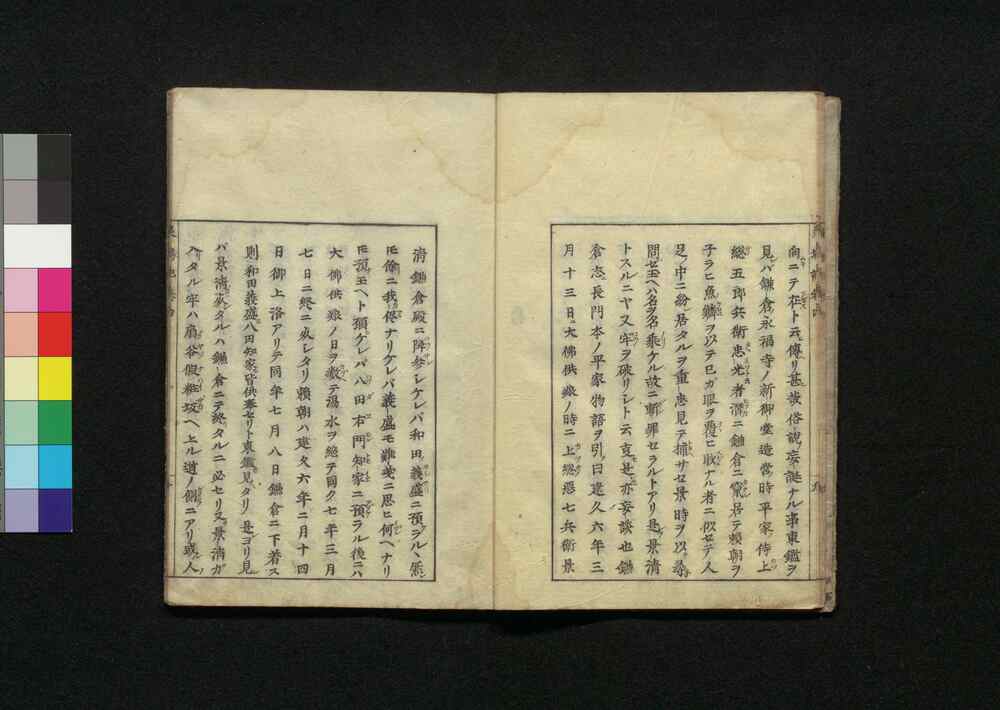 向ニテ在ト云傳リ甚哉俗説ノ妄誕ナル事東鑑ヲ
見バ鎌倉永福寺ノ新御堂造営時平家侍上
総五郎兵衛忠光者潜ニ鎌倉ニ窺居テ頼朝ヲ
子ラヒ魚鱗ヲ以テ己ガ眼ヲ覆ヒ眇ナル者ニ似セテ人
足ノ中ニ紛居タルヲ重忠見テ捕サセ景時ヲ以テ尋
問セ玉ヘハ名ヲ名乗ケル故ニ斬罪セラルトアリ是ヲ景清
トスルニヤ又牢ヲ破リシト云支是亦妄談也鎌
倉志長門本ノ平家物語ヲ引曰建久六年三
月十三日大佛供養ノ時ニ上総悪七兵衛景
清鎌倉殿ニ降参シケレバ和田義盛ニ預ラル、然
ニ我侭ナリケレバ義盛モ難義ニ思ヒ何ヘナリ
預玉ヘト頻ケレバ八田右門知家ニ預ラル後ニハ
大佛供養ノ日ヲ数テ湯水ヲ絶テ同ク七年三月
七日ニ終ニ死シタリ頼朝ハ建久六年二月十四
日御上洛アリテ同年七月八日鎌倉ニ下着ス
則和田義盛八田知家皆供奉セリト東鑑見タリ是ヨリ見
バ景清死タルハ鎌倉ニテ終タルニ必セリ又景清ガ
入タル牢ハ扇谷假粧坂ヘ上ル道ノ側ニアリ或人